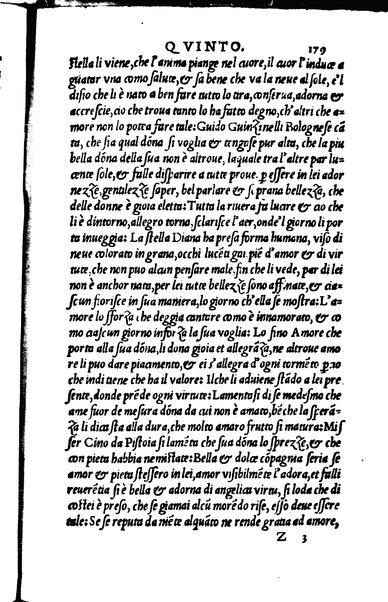 QVINTO. 179
ſtella li viene, che l'anima piange nel cuore, il cuor l'induce a
guatar vna como ſalute, & ſa bene che va la neue al ſole, e'l
diſio che li è nato a ben fare tutto lo tira, conſerua, adorna &
accreſcie, cio che troua tanto lo ha fatto degno, ch'altri che a-
more non lo potea fare tale: Guido Guinȥinelli Bologneſe cā
ta, che ſia qual dōna ſi voglia & tengaſe pur alta, che la piu
bella dōna della ſua non è altroue, laquale tra l'altre par lu-
cente ſole, & falle diſparire a tutte proue. ꝑ eſſere in lei ador
neȥȥe, gentileȥȥe ſaper, bel parlare & ſi prana belleȥȥa, che
delle donne è gioia eletta: Tutta la riuera fa lucere & ao che
li è dintorno, allegro torna. ſclariſce l'aer, onde'l giorno li por
ta inueggia: La ſtella Diana ha preſa forma humana, viſo di
neue colorato in grana, occhi lucēti gai, piē d'amor & di vir
tute, che non puo alcun penſare male, fin che li vede, par di lei
non è anchor nata, per lei tutte belleȥȥe ſono affinate, & cia-
ſcun fioriſce in ſua maniera, lo giorno ch'ella ſe moſtra: L'a-
more lo sforȥa, che deggia cantare como è innamorato, & co
mo caſcun giorno inforȥa la ſua voglia: Lo fino Amore che
porta alla ſua dōna, li dona gioia et allegrāȥa, ne altroue amo
re li puo dare piacimento, & ei s'allegra d'ogni tormēto ꝑ ao
che indi tiene che ha il valore: Ilche li aduiene ſtādo a lei pre
ſente, donde prēde ogni virtute: Lamentaſi di ſe medeſmo che
ame fuor de meſura dōna da cui non è amato, bēche la ſperā-
ȥa li dica ſta alla dura, che molto amaro frutto ſi matura: Miſ
ſer Cino da Piſtoia ſi lamēta che ſua dōna lo ſpreȥȥe, & che
con pieta habbia nemiſtate: Bella & dolce cōpagnia ſeria ſe
amor & pieta ſteſſero in lei, amor viſibilmēte l'adora, et falli
reuerētia ſi è bella & adorna di angelica virtu, ſi loda che di
coſtei è preſo, che ſe giamai alcū more' do riſe, eſſo deue eſſere
tale: Se ſe reputa da niēte alquāto ne rende gratia ad amore,
Z 3